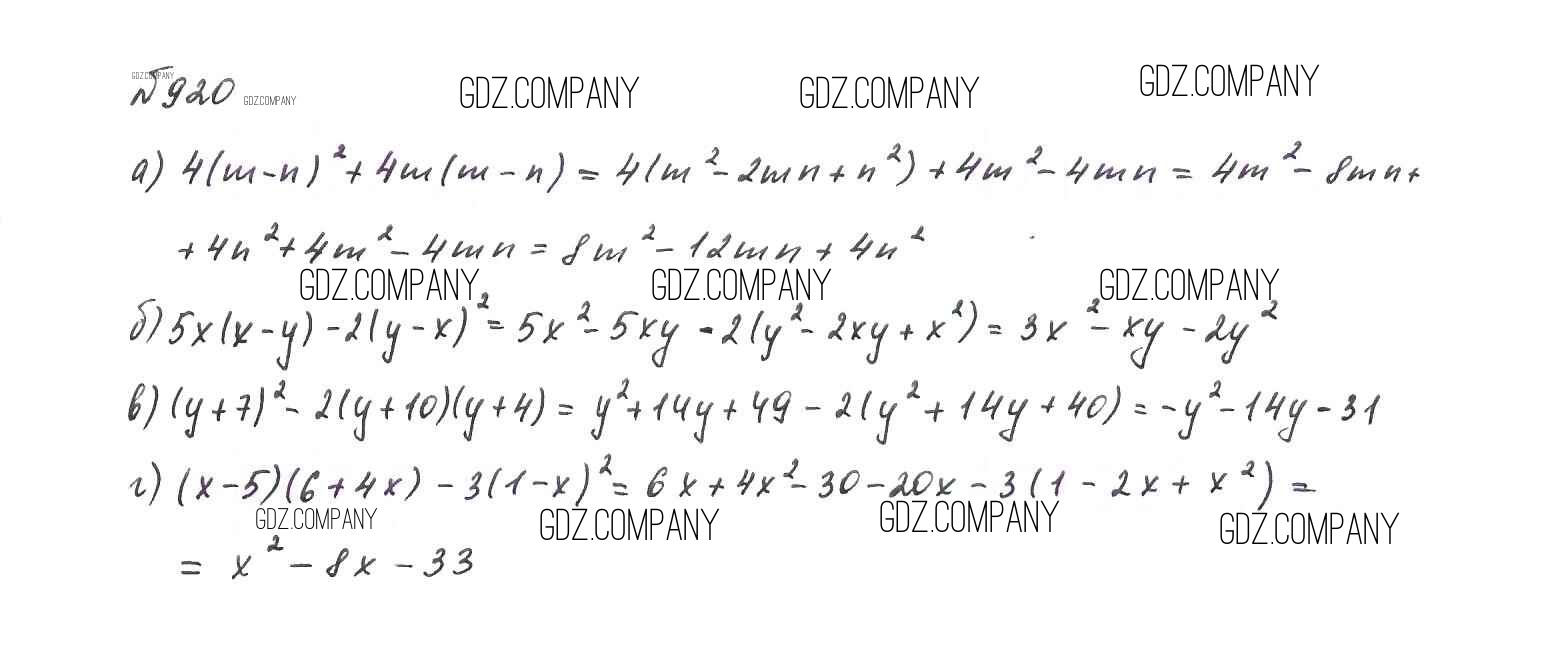 №920 GDZ.COMPANY GDZ.COMPANY GDZ.COMPANY GDZ.COMPANY GDZ.COMPANY
а) 4(m-n)²+4m(m-n)=4(m²-2mn+n²)+4m²-4mn=4m²-8mn+
+4n²+4m²-4mn=8m²-12mn+4n²
GDZ.COMPANY GDZ.COMPANY GDZ.COMPANY
б) 5x(x-y)-2(y-x)²=5x²-5xy-2(y²-2xy+x²)=3x²-xy-2y²
в) (y+7)²-2(y+10)(y+4)=y²+14y+49-2(y²+14y+40)=-y²-14y-31
г) (x-5)(6+4x)-3(1-x)²=6x+4x²-30-20x-3(1-2x+x²)=
GDZ.COMPANY GDZ.COMPANY GDZ.COMPANY GDZ.COMPANY
=x²-8x-33